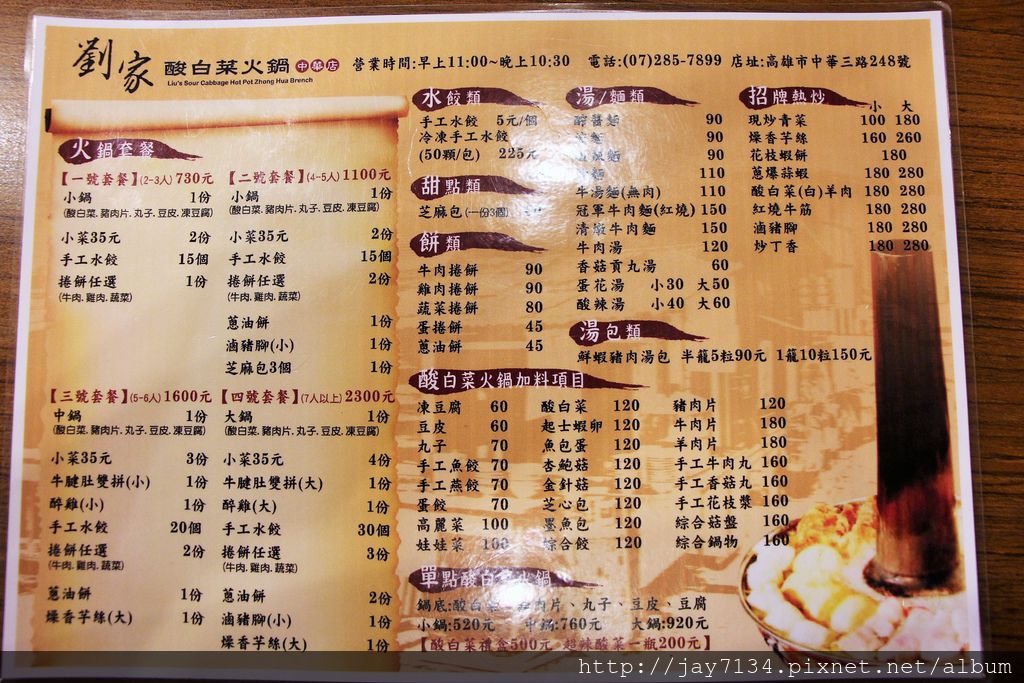 劉家 酸白菜火鍋 中華店
Liu's Sour Cabbage Hot Pot Zhong Hua Brench
營業時間:早上11:00~晚上10:30 電話:(07)285-7899 店址:高雄市中華三路248號
火鍋套餐
【一號套餐】(2-3人)730元
小鍋 1份
(酸白菜.豬肉片.丸子.豆皮.凍豆腐)
小菜35元 2份
手工水餃 15個
捲餅任選 1份
(牛肉.雞肉.蔬菜)
【二號套餐】(4-5人)1100元
小鍋 1份
(酸白菜.豬肉片.丸子.豆皮.凍豆腐)
小菜35元 2份
手工水餃 15個
捲餅任選 2份
(牛肉.雞肉.蔬菜)
蔥油餅 1份
滷豬腳(小) 1份
芝麻包3個 1份
【三號套餐】(5-6人)1600元
中鍋 1份
(酸白菜.豬肉片.丸子.豆皮.凍豆腐)
小菜35元 3份
牛腱肚雙拼(小) 1份
醉雞(小) 1份
手工水餃 20個
捲餅任選 2份
(牛肉.雞肉.蔬菜)
蔥油餅 1份
燥香芋絲(大) 1份
【四號套餐】(7人以上)2300元
大鍋 1份
(酸白菜.豬肉片.丸子.豆皮.凍豆腐)
小菜35元 4份
牛腱肚雙拼(大) 1份
醉雞(大) 1份
手工水餃 30個
捲餅任選 3份
(牛肉.雞肉.蔬菜)
蔥油餅 2份
滷豬腳(小) 1份
燥香芋絲(大) 1份
水餃類
手工水餃 5元/個
冷凍手工水餃
(50顆/包) 225元
甜點類
芝麻包(一份3個)
餅類
牛肉捲餅 90
雞肉捲餅 90
蔬菜捲餅 80
蛋捲餅 45
蔥油餅 45
湯/麵類
醡醬麵 90
麵 90
麵 90
麵 110
牛湯麵(無肉) 110
冠軍牛肉麵(紅燒) 150
清燉牛肉麵 150
牛肉湯 120
香菇貢丸湯 60
蛋花湯 小30 大50
酸辣湯 小40 大60
湯包類
鮮蝦豬肉湯包 半籠5粒90元 1籠10粒150元
招牌熱炒 小 大
現炒青菜 100 180
燥香芋絲 160 260
花枝蝦餅 180
蔥爆蒜蝦 180 280
酸白菜(白)羊肉 180 280
紅燒牛筋 180 280
滷豬腳 180 280
炒丁香 180 280
酸白菜火鍋加料項目
凍豆腐 60 酸白菜 120 豬肉片 120
豆皮 60 起士蝦卵 120 牛肉片 180
丸子 70 魚包蛋 120 羊肉片 180
手工魚餃 70 杏鮑菇 120 手工牛肉丸 160
手工燕餃 70 金針菇 120 手工香菇丸 160
蛋餃 70 芝心包 120 手工花枝漿 160
高麗菜 100 墨魚包 120 綜合菇盤 160
娃娃菜 100 綜合餃 120 綜合鍋物 160
單點酸白菜火鍋
鍋底:酸白菜、豬肉片、丸子、豆皮、豆腐
小鍋:520元 中鍋:760元 大鍋:920元
【酸白菜禮盒500元 超辣酸菜一瓶200元】
http://jay7134.pixnet.net/album